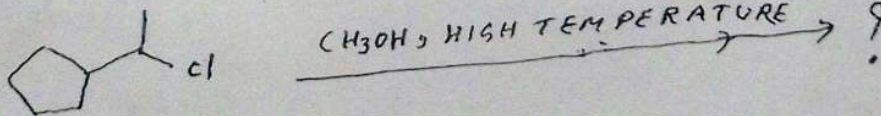 CH3OH, HIGH TEMPERATURE
?
cl